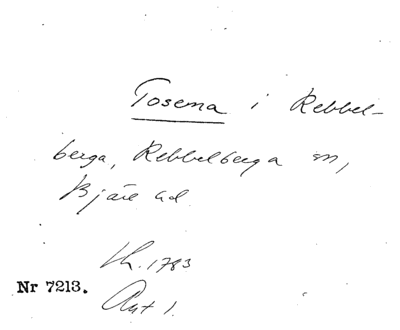 Tosema i Rebbel-
berga, Rebbelberga sn,
Bjäre hd.
Lh. 1783
Nr 7213.
Akt 1.